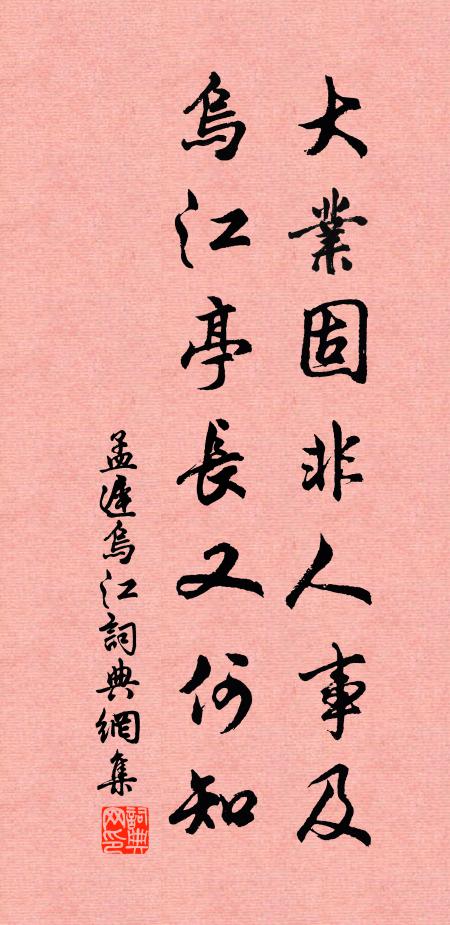 大業固非人事及
烏江亭長又何知
孟遲烏江詞典網集
詞典网印